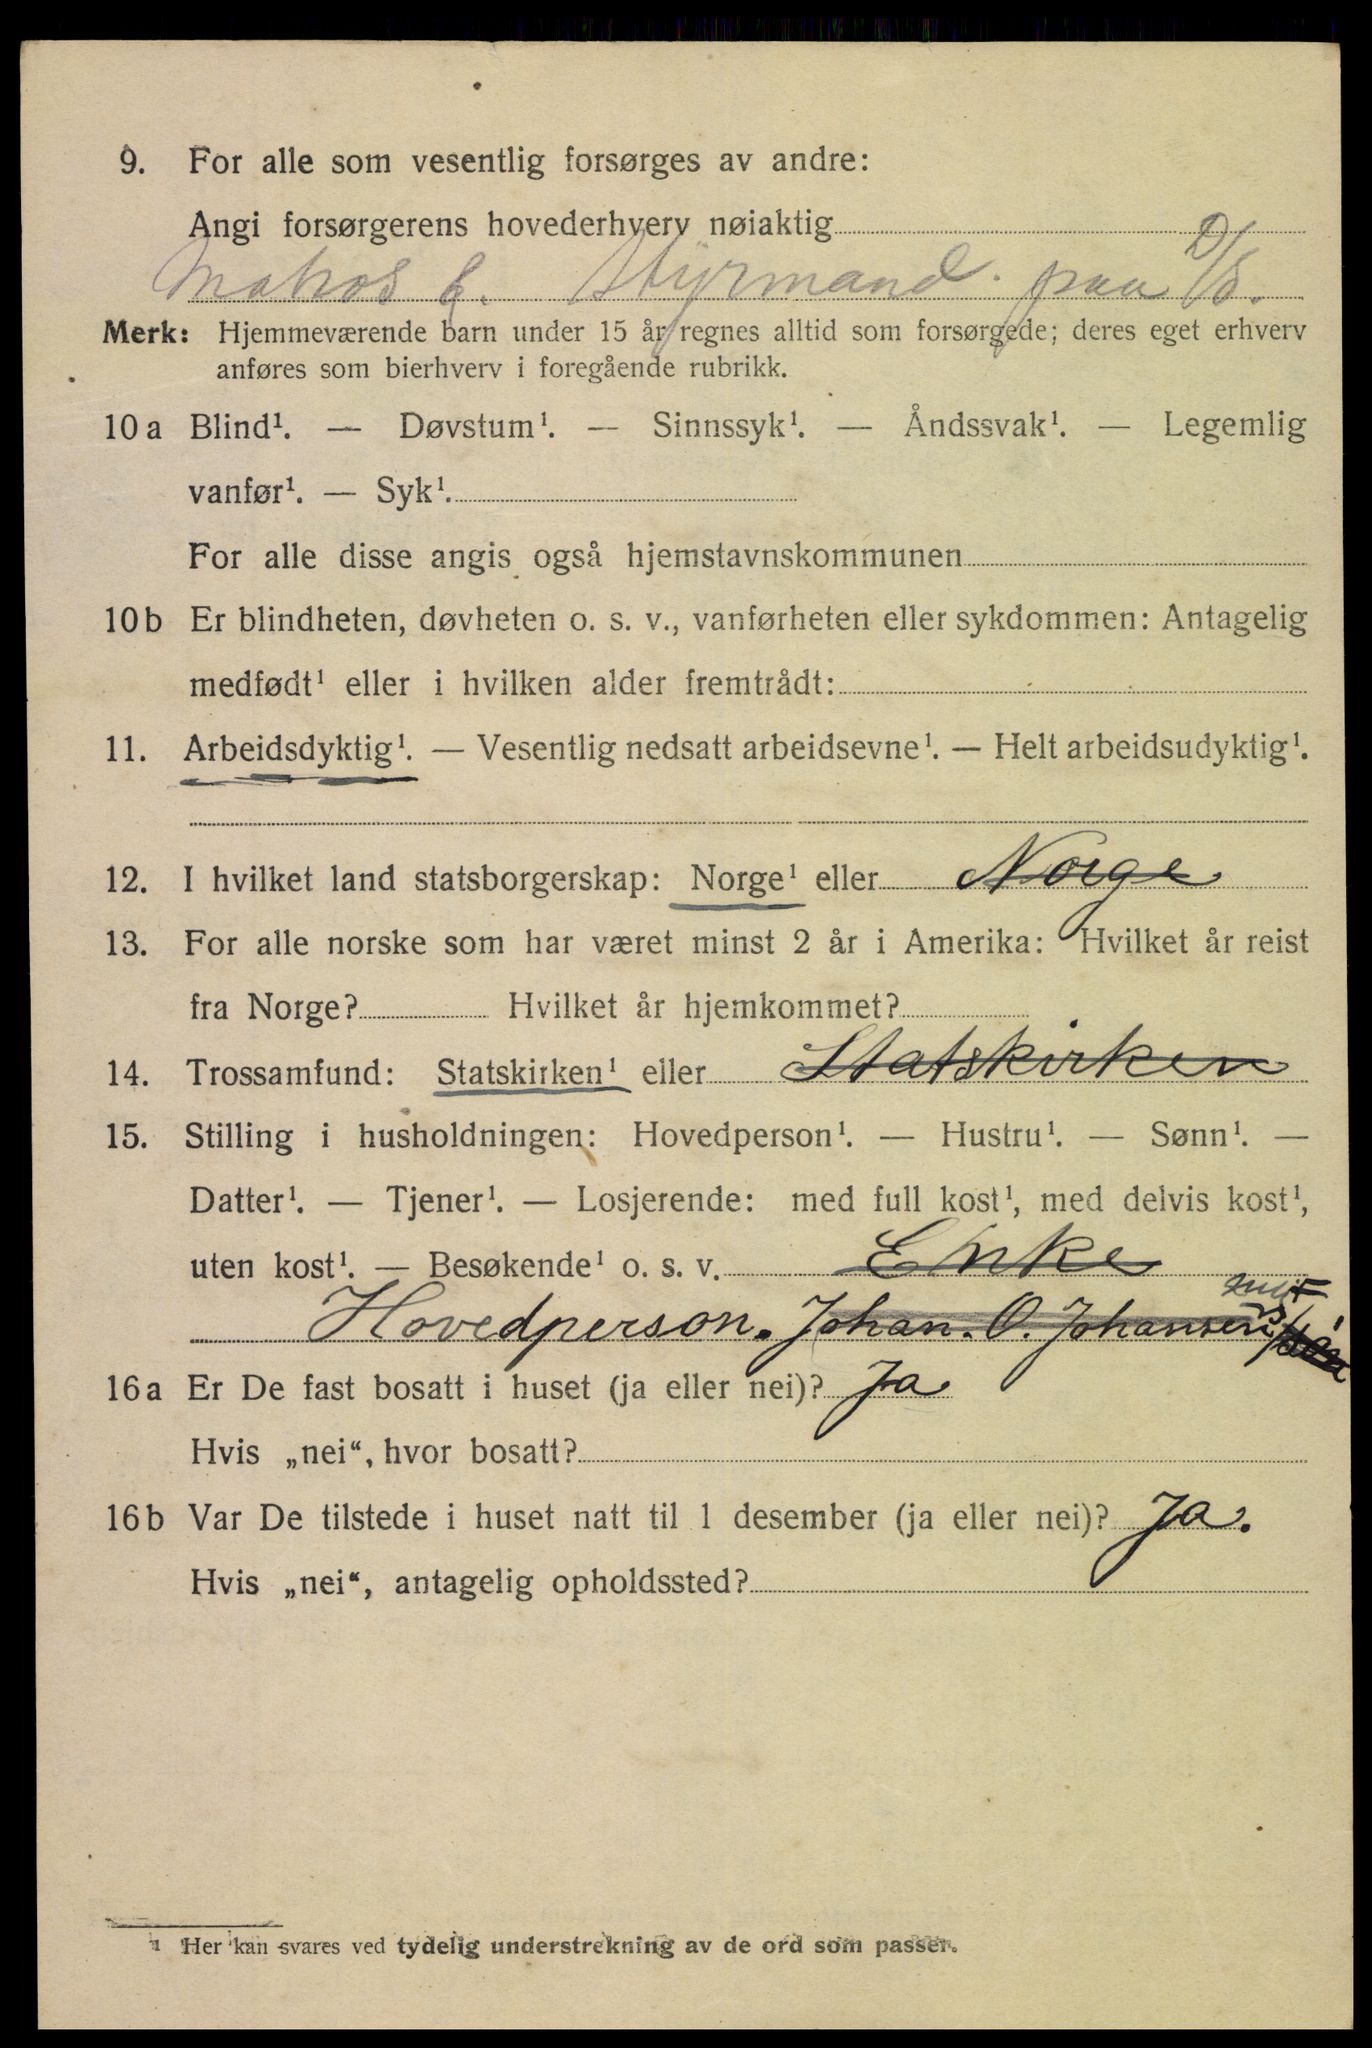 9. For alle som vesentlig forsørges av andre:
Angi forsørgerens hovederhverv nøiaktig
Matros &. Styrmand paa D/S.
Merk: Hjemmeværende barn under 15 år regnes alltid som forsørgede; deres eget erhverv
anføres som bierhverv i foregående rubrikk.
10 a Blind¹. — Døvstum¹. — Sinnssyk¹. — Åndssvak¹. — Legemlig
vanfør¹. — Syk¹.
For alle disse angis også hjemstavnskommunen
10 b Er blindheten, døvheten o. s. v., vanførheten eller sykdommen: Antagelig
medfødt¹ eller i hvilken alder fremtrådt:
11. Arbeidsdyktig¹. — Vesentlig nedsatt arbeidsevne¹. — Helt arbeidsudyktig¹.
12. I hvilket land statsborgerskap: Norge¹ eller Norge
13. For alle norske som har været minst 2 år i Amerika: Hvilket år reist
fra Norge? Hvilket år hjemkommet?
14. Trossamfund: Statskirken¹ eller Statskirken
15. Stilling i husholdningen: Hovedperson¹. — Hustru¹. — Sønn¹. —
Datter¹. — Tjener¹. — Losjerende: med full kost¹, med delvis kost¹,
uten kost¹. — Besøkende¹ o. s. v. Enke
Hovedperson. Johan. O. Johansen
16 a Er De fast bosatt i huset (ja eller nei)? Ja
Hvis „nei“, hvor bosatt?
16 b Var De tilstede i huset natt til 1 desember (ja eller nei)? Ja.
Hvis „nei“, antagelig opholdssted?
¹ Her kan svares ved tydelig understrekning av de ord som passer.